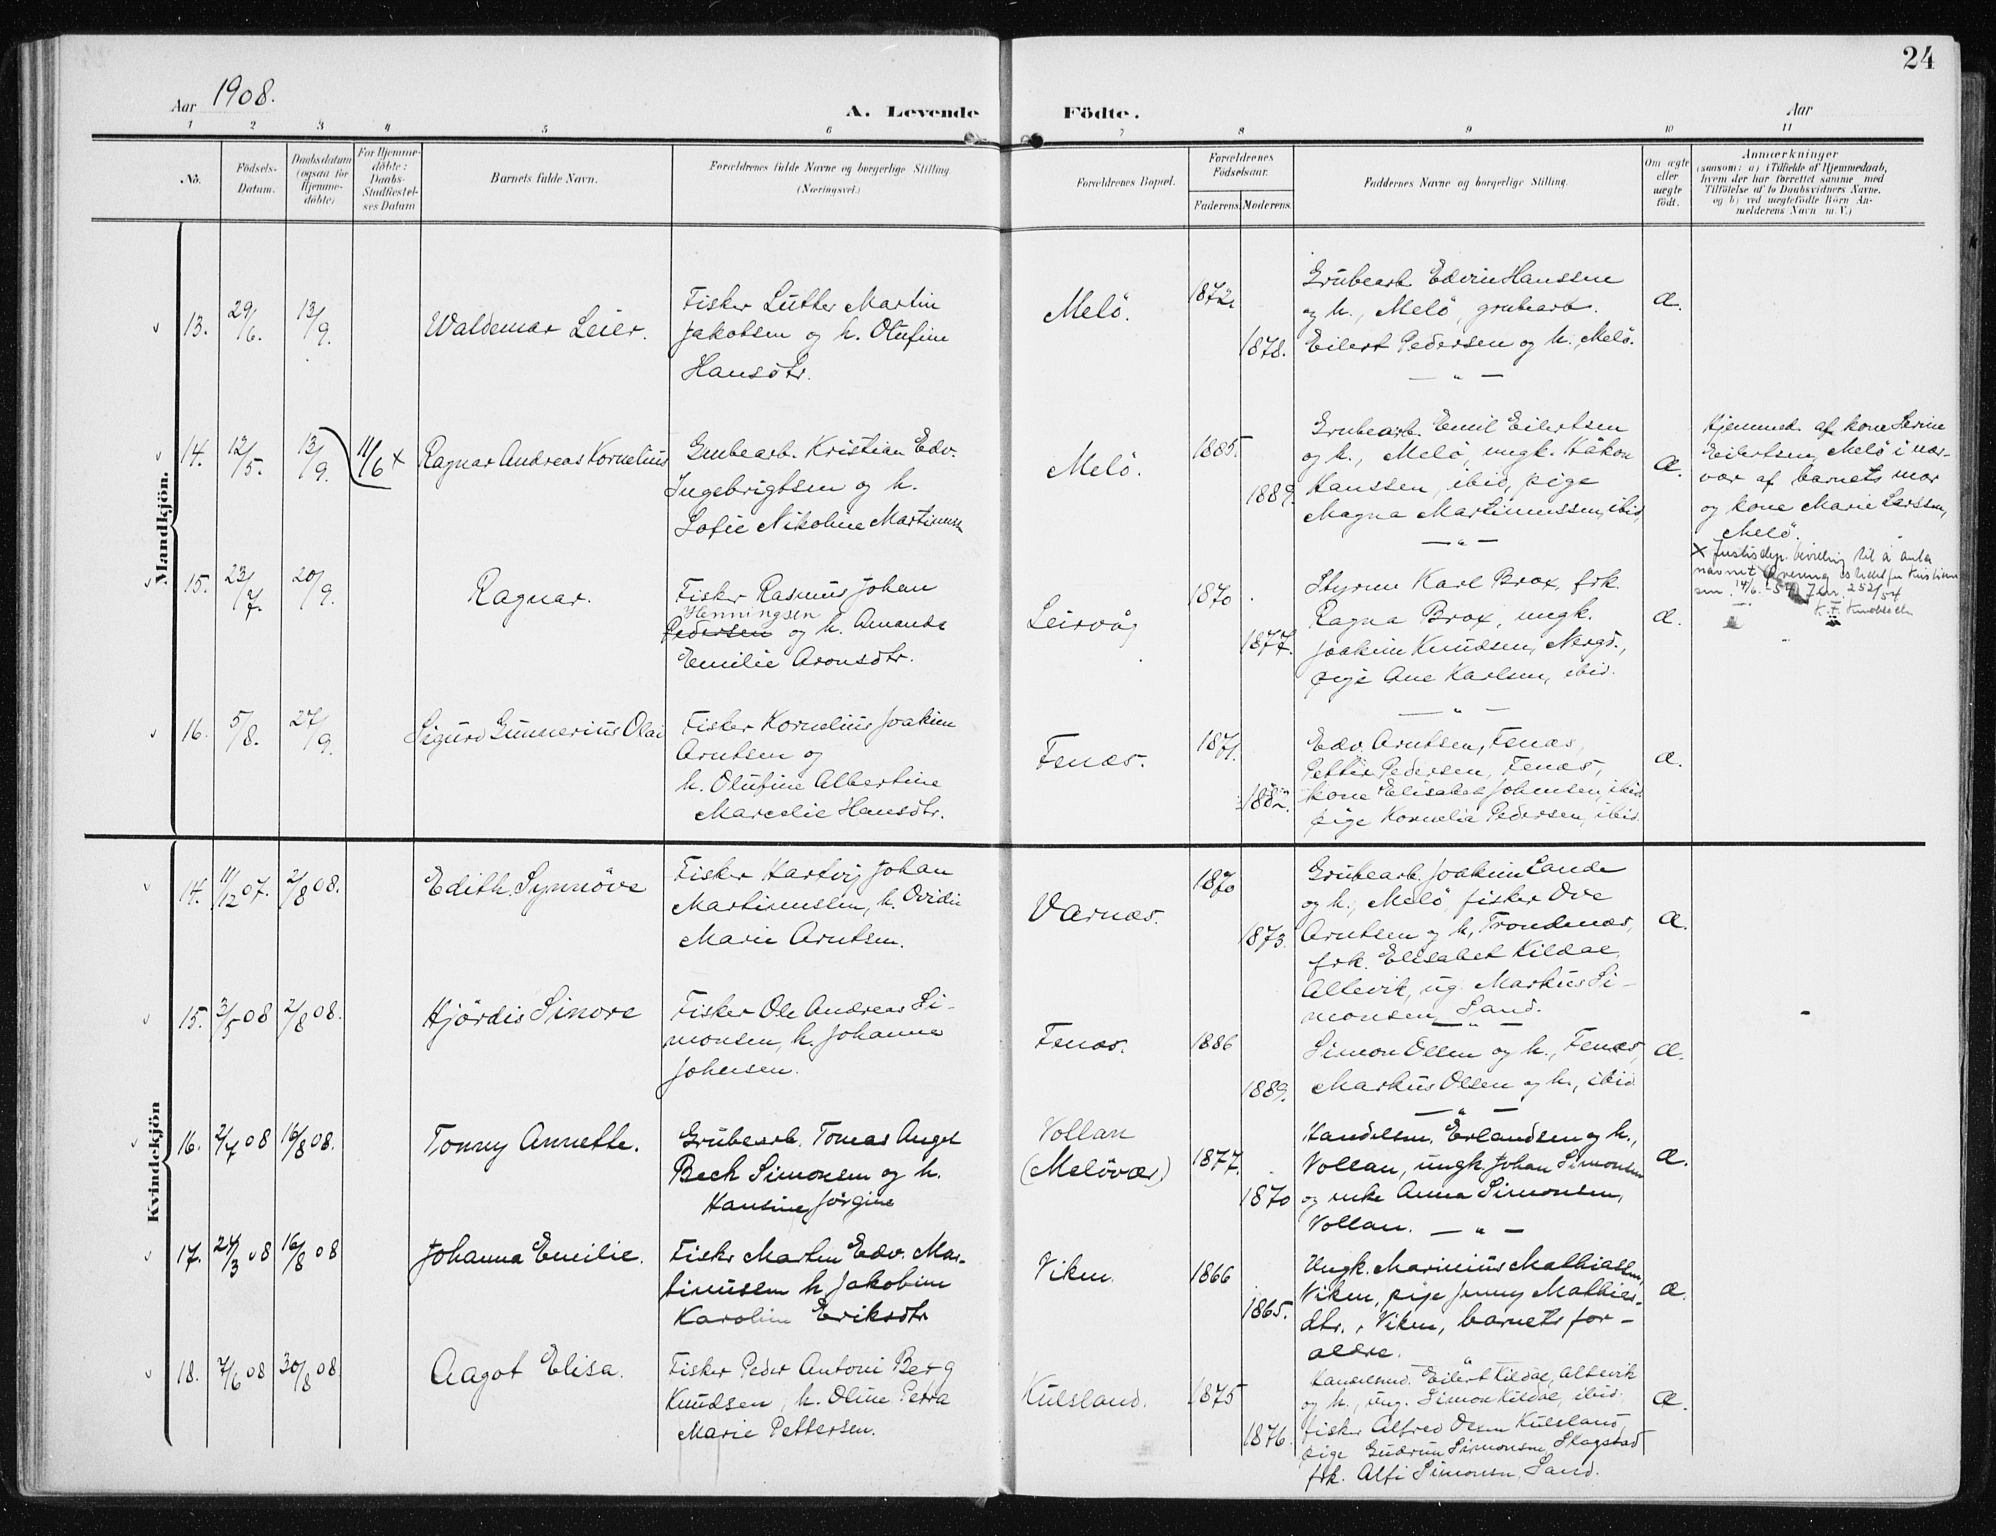 24
Aar 1908.
A. Levende Födte.
Aar
1 2 3 4 5 6 7 8 9 10 11
No.
Födsels-
Datum.
Daabsdatum
(ogsaa for
Hjemme-
döbte)
For Hjemme-
döbte:
Daabs-
Stadfæstel-
ses Datum
Barnets fulde Navn.
Forældrenes fulde Navne og borgerlige Stilling
(Næringsvei.)
Forældrenes Bopæl.
Forældrenes
Födselsaar.
Faderens. Moderens.
Faddernes Navne og borgerlige Stilling.
Om ægte
eller
uægte
födt.
Anmærkninger
(saasom: a) i Tilfælde af Hjemmedaab,
hvem der har forrettet samme med
Tilföielse af to Daabsvidners Navne.
og b) ved uægtefödte Börn An-
melderens Navn m. V.)
Mandkjön.
13. 29/6. 13/9. Waldemar Leier.
Fisker Lutter Martin
Jakobsen og h. Olufine
Hansdtr.
Melö. 1872. 1878.
Grubearb. Edvin Hanssen
og h., Melö, grubearb.
Eilert Pedersen og h. Melö.
— " —
æ.
14. 12/5. 13/9. 11/6 x Ragnar Andreas Kornelius
Grubearb. Kristian Edv.
Ingebrigtsen og h.
Sofie Nikoline Martinussen
Melö. 1885. 1889.
Grubearb. Emil Eilertsen
og h., Melö, ungk. Håkon
Hanssen, ibid, pige
Magna Martinussen, ibid,
— " —
æ.
Hjemmed. af kone Serine
Eilertsen, Melö i nær-
vær af barnets mor
og kone Marie Larssen,
Melö.
X Justisdep. bevilling til å anta
navnet
14/6.-54 252/54
15. 23/7. 20/9. Ragnar.
Fisker Rasmus Johan
Henningsen
Pedersen og h. Amanda
Emilie Aronsdtr.
Leirvåg 1870 1877.
Styrm Karl Brox, frk.
Ragna Brox, ungk.
Joakim Knudsen, Nergd.,
pige Ane Karlsen, ibid.
— " —
æ.
16. 5/8. 27/9. Sigurd Gunnerius Olai
Fisker Kornelius Joakim
Arntsen og
h. Olufine Albertine
Marcelie Hansdtr.
Fenæs. 1871. 1882.
Edv. Arntsen, Fenæs,
Petter Pedersen, Fenæs,
kone Elisabet Johnsen, ibid
pige Kornelie Pedersen, ibid.
æ.
Kvindekjön
14. 11/12 07. 2/8 08. Edith Synnöve
Fisker Hartvig Johan
Martinussen, h. Ovidie
Marie Arntsen.
Varnæs. 1870 1873.
Grubearb. Joakim Lande
og h., Melö, fisker Ove
Arntsen og h, Trondenæs,
frk. Elisabet Kildal,
Altevik, ug. Markus Si-
monsen, Sand.
— " —
æ.
15. 3/5 08 2/8 08. Hjördis Sinore
Fisker Ole Andreas Si-
monsen, h. Johanna
Johnsen.
Fenæs. 1886 1889.
Simon Olsen og h., Fenæs,
Markus Olsen og h., ibid
— " —
æ.
16. 2/7 08 16/8 08. Tonny Annette.
Grubearb. Tomas Angel
Bech Simonsen og h.
Hansine Jörgine
Vollan
(Melövær)
1877. 1870
Handelsm. Erlandsen og h.,
Vollan, ungk. Johan Simonsen
og enke Anna Simonsen,
Vollan. — " —
æ.
17. 24/3 08 16/8 08 Johanna Emilie.
Fisker Marten Edv. Mar-
tinussen h. Jakobine
Karoline Eriksdtr.
Viken. 1866 1865.
Ungk. Marinius Mathiassen,
Viken, pige Jenny Mathias-
dtr., Viken, barnets for-
ældre.
— " —
æ.
18. 7/6 08 30/8 08 Aagot Elisa.
Fisker Peder Antoni Berg
Knudsen, h. Oline Petra
Marie Pettersen.
Kulsland. 1875 1876.
Handelsmd. Eilert Kildal, Altevik
og h., ung. Simon Kildal, ibid,
fisker Alfred Olsen Kulsland,
pige Gudrun Simonsen, Skogstad
frk. Alfi Simonsen, Sand.
æ.